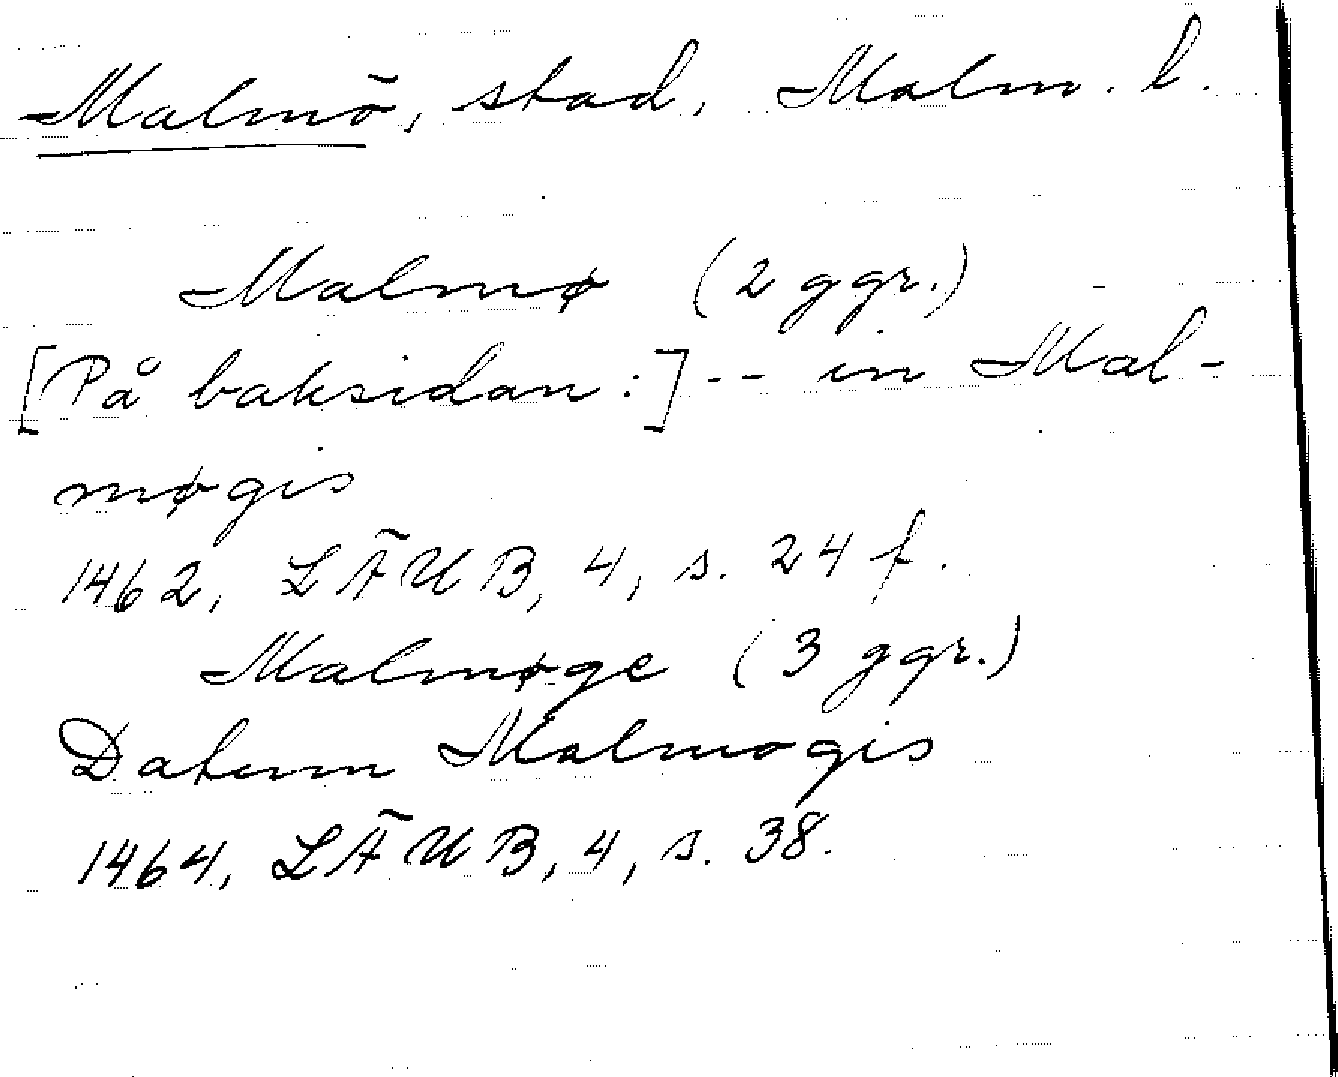 Malmö, stad, Malm. l.
Malmø (2 ggr.)
[På baksidan:] -- in Mal-
møgis
1462, LÄUB, 4, s. 24 f.
Malmøge (3 ggr.)
Datum Malmogis
1464, LÄUB, 4, s. 38.